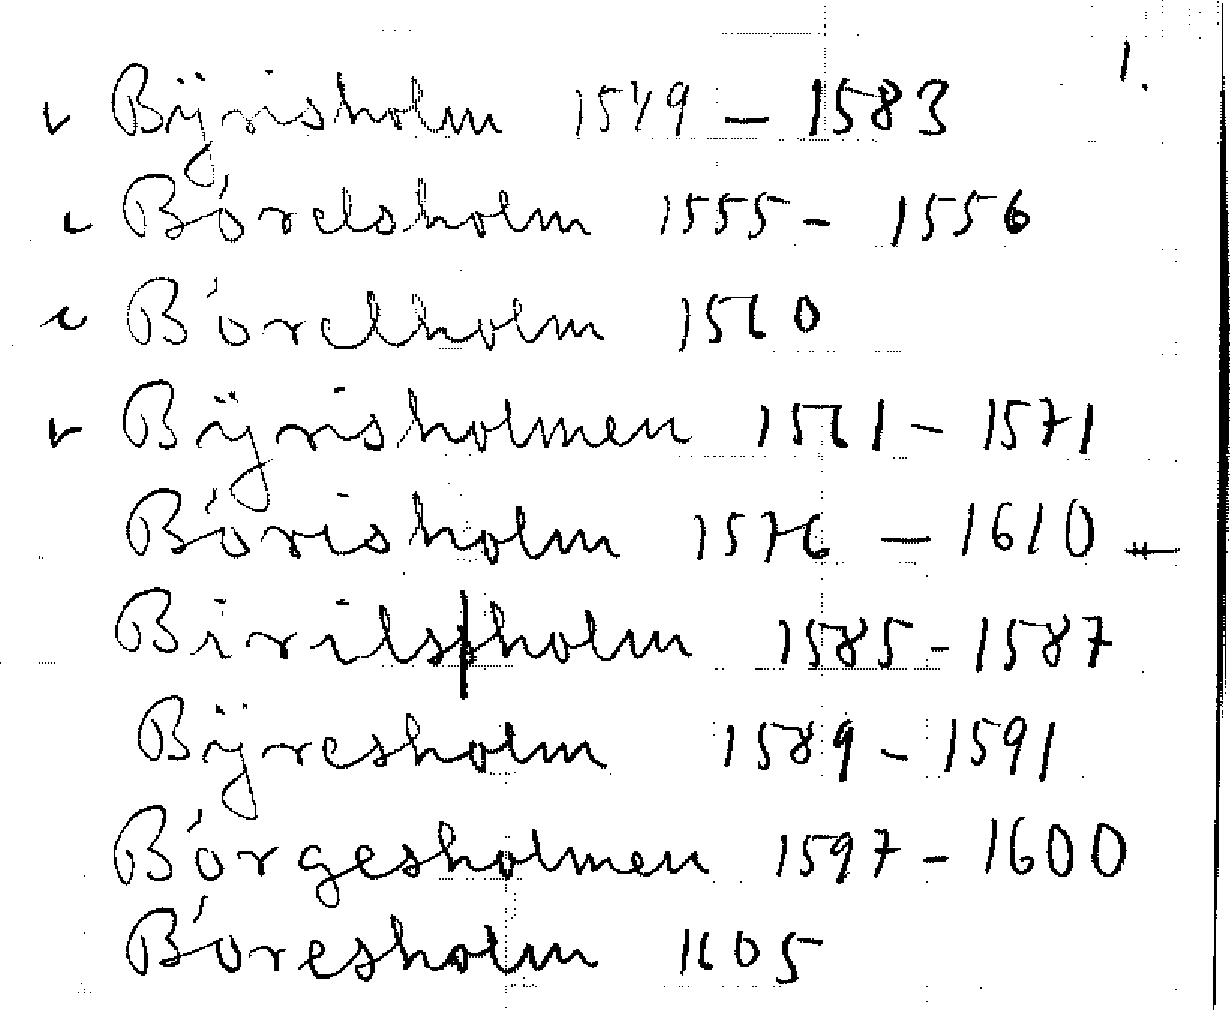 1.
Bÿrisholm 1549 – 1583
Bórelsholm 1555 – 1556
Bórelholm 1560
Bÿrisholmen 1561 – 1571
Bórisholm 1576 – 1610
Birilsholm 1585 – 1587
Bÿresholm 1589 – 1591
Bórgesholmen 1597 – 1600
Bóresholm 1605